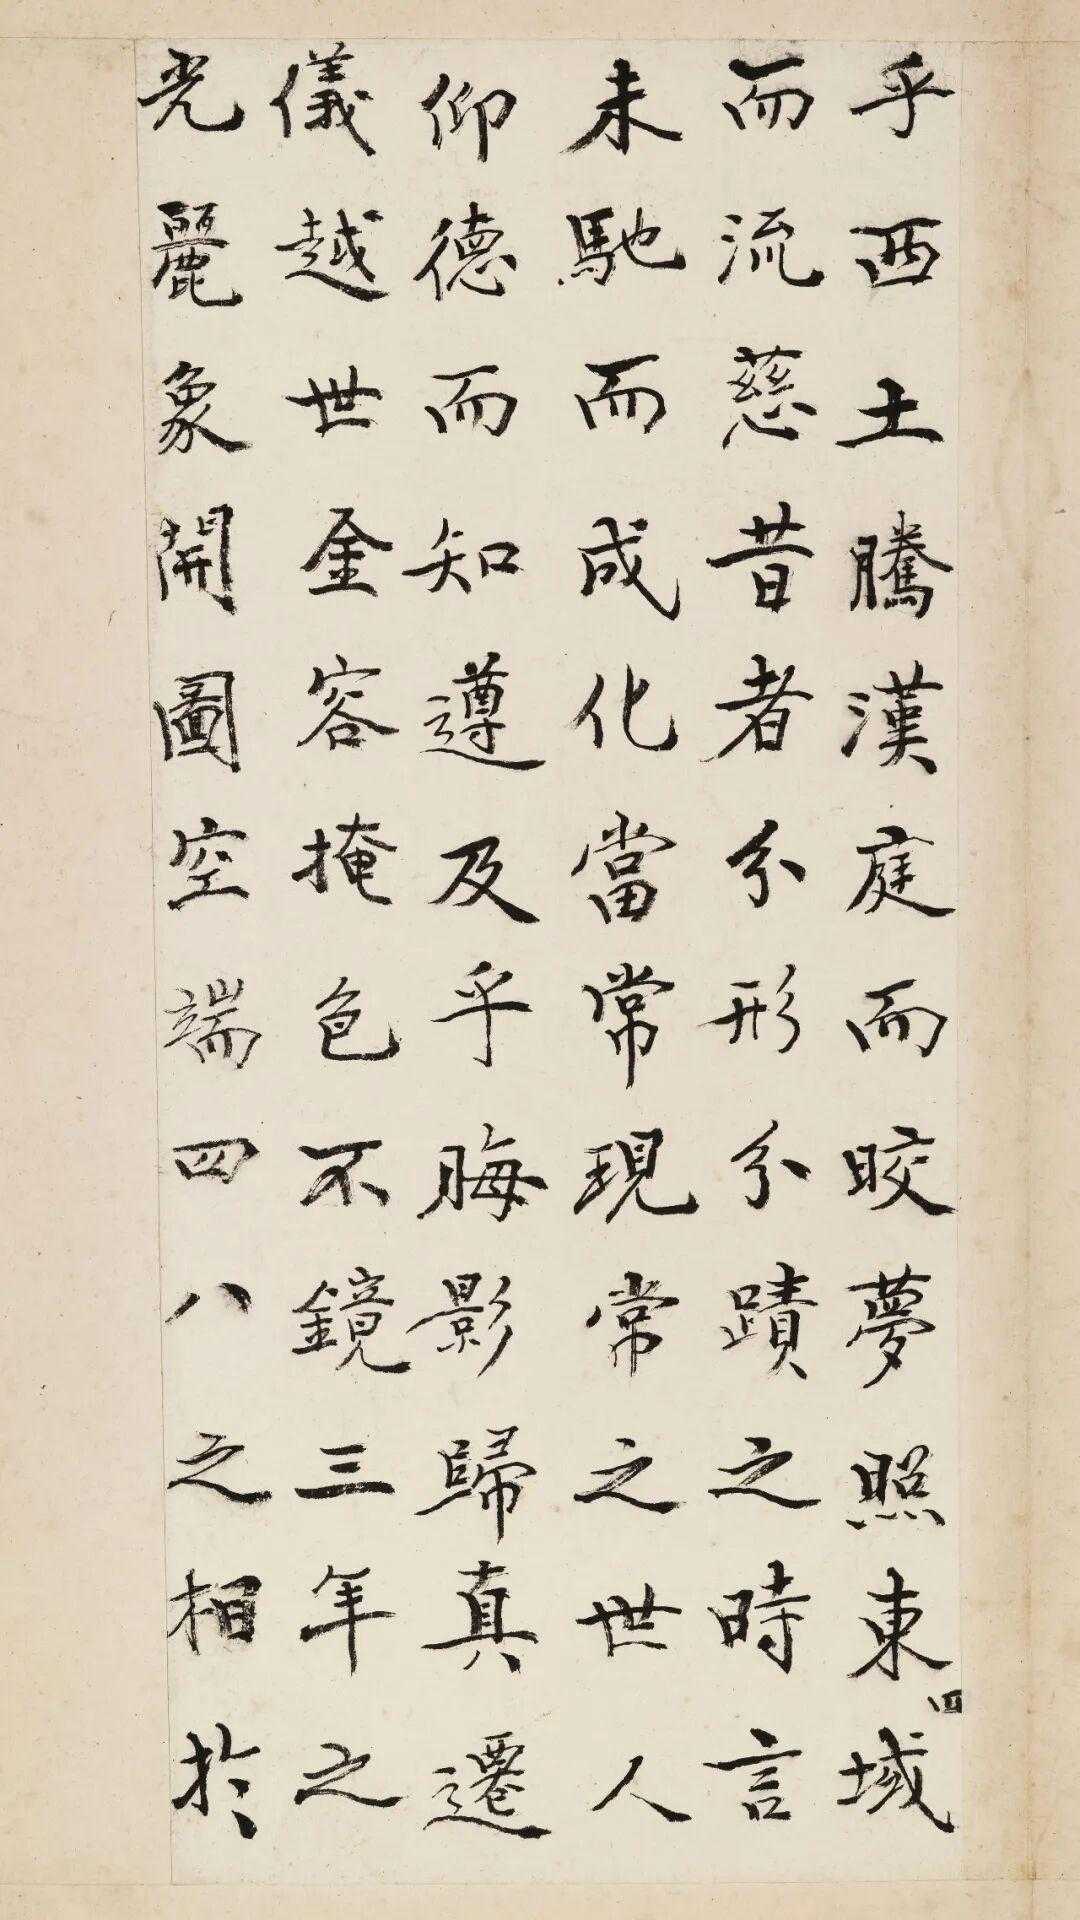 乎西土騰漢庭而皎夢照東域
四
而流慈昔者分形分蹟之時言
未馳而成化當常現常之世人
仰德而知遵及乎晦影歸真遷
儀越世金容掩色不鏡三年之
光麗象開圖空端四八之相於